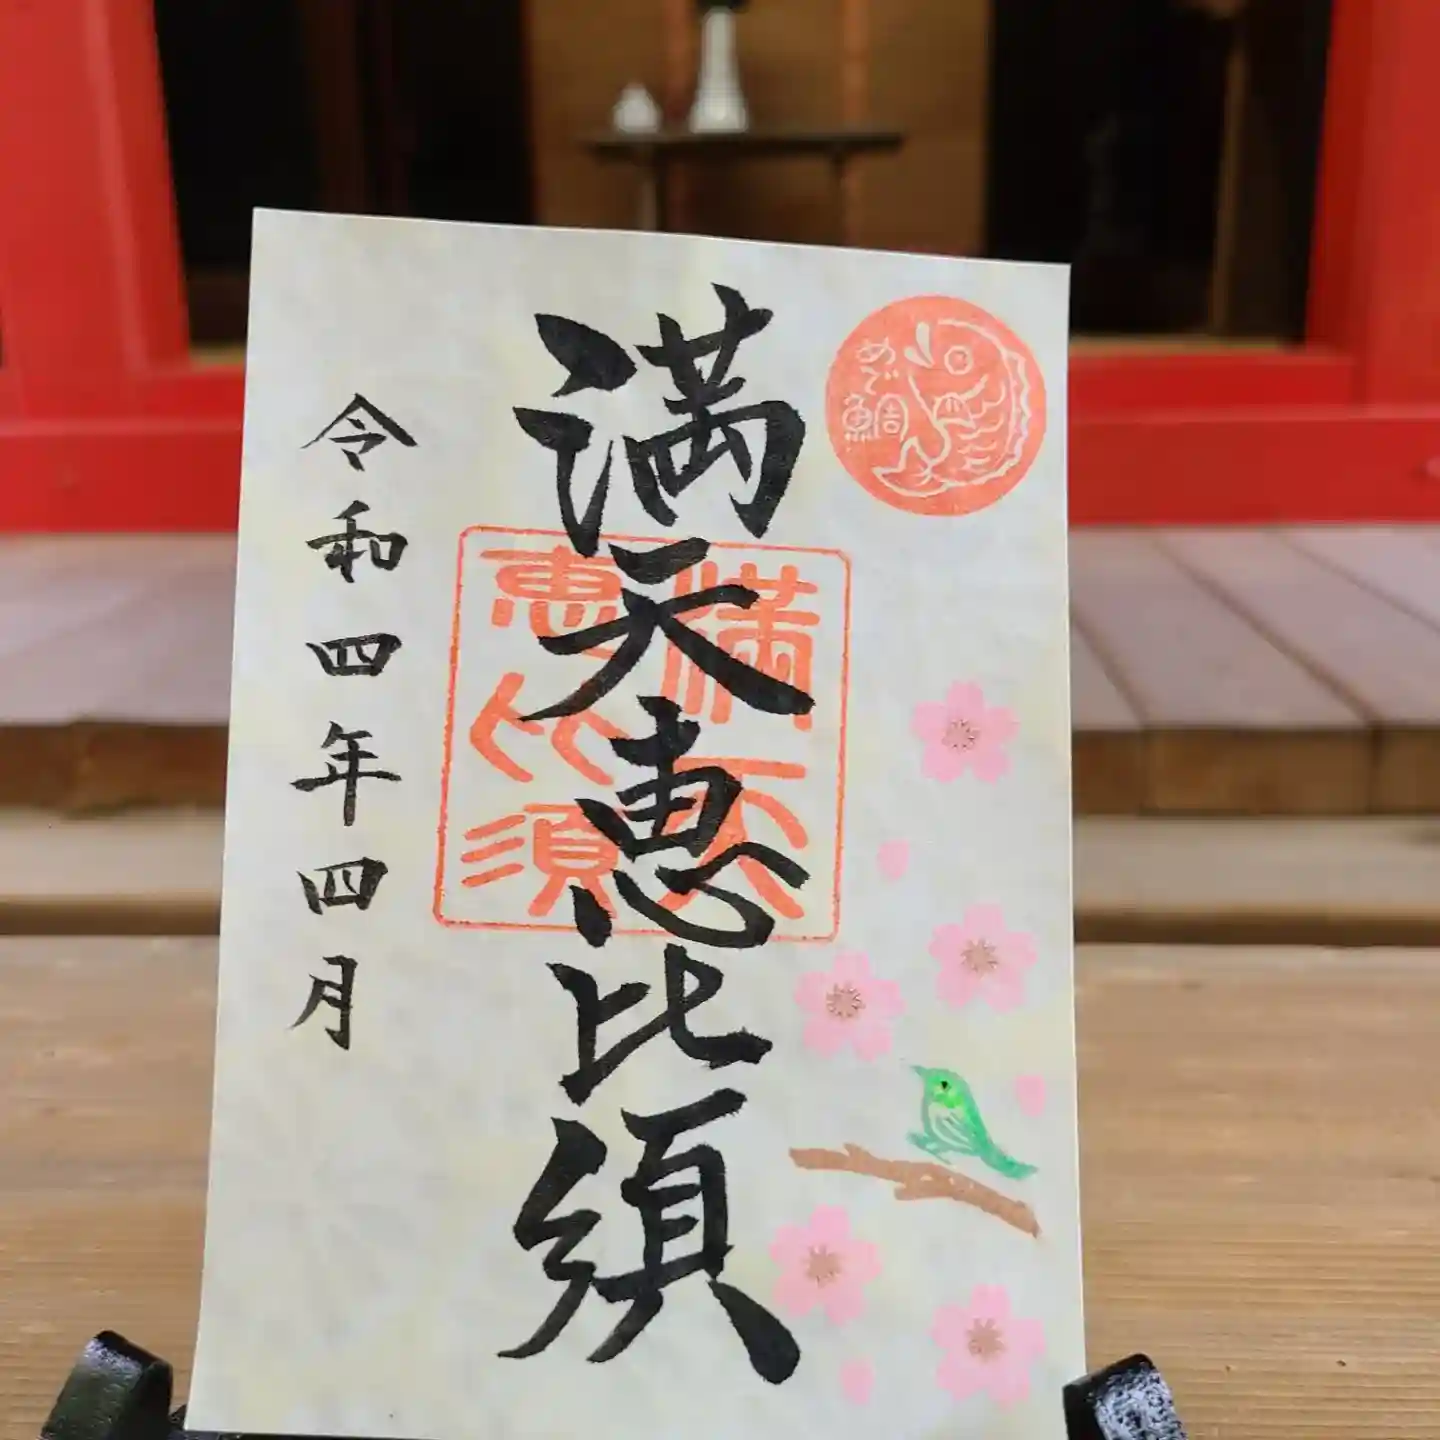 めで鯛
満天恵比須
満天
恵比須
令和四年四月